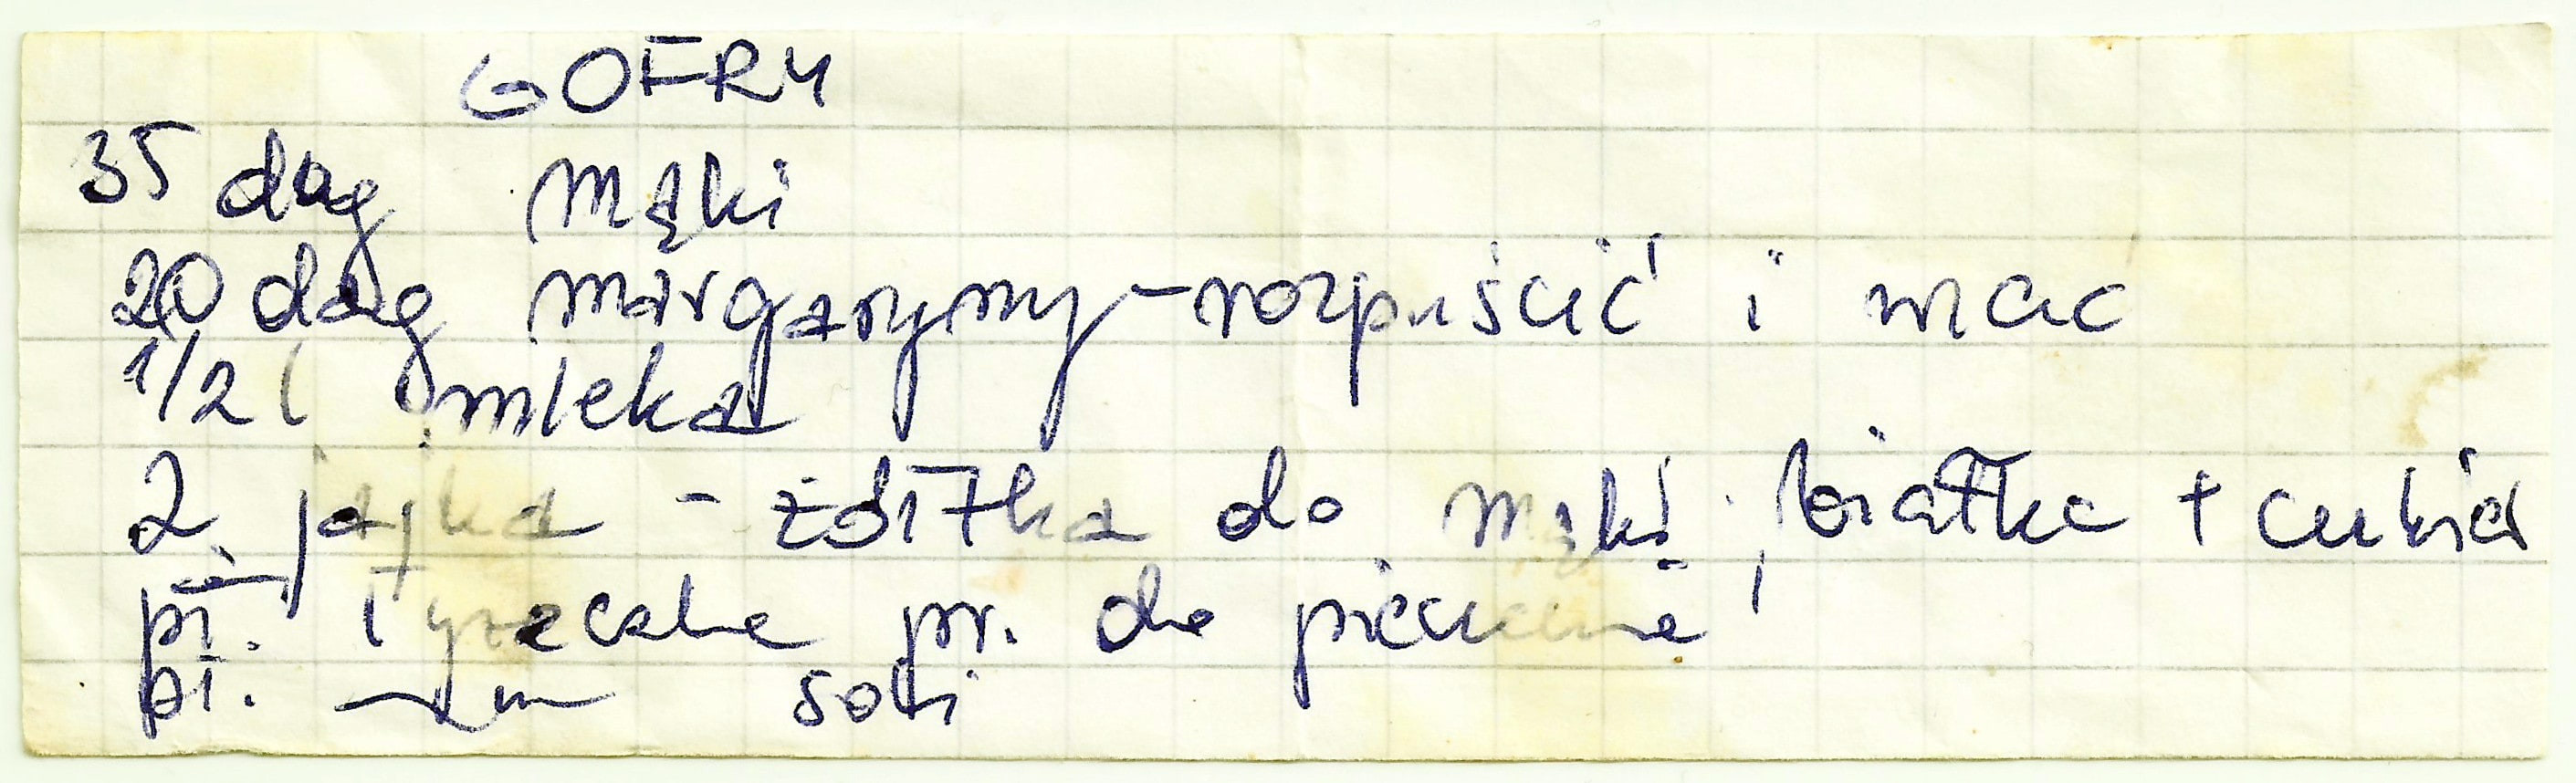 GOFRY
35 dag mąki
20 dag margaryny - rozpuścić i wlać
1/2 l mleka
2 jajka - żółtka do mąki, białka + cukier
pł. łyżeczki pr. do pieczenia
pł. —„— soli